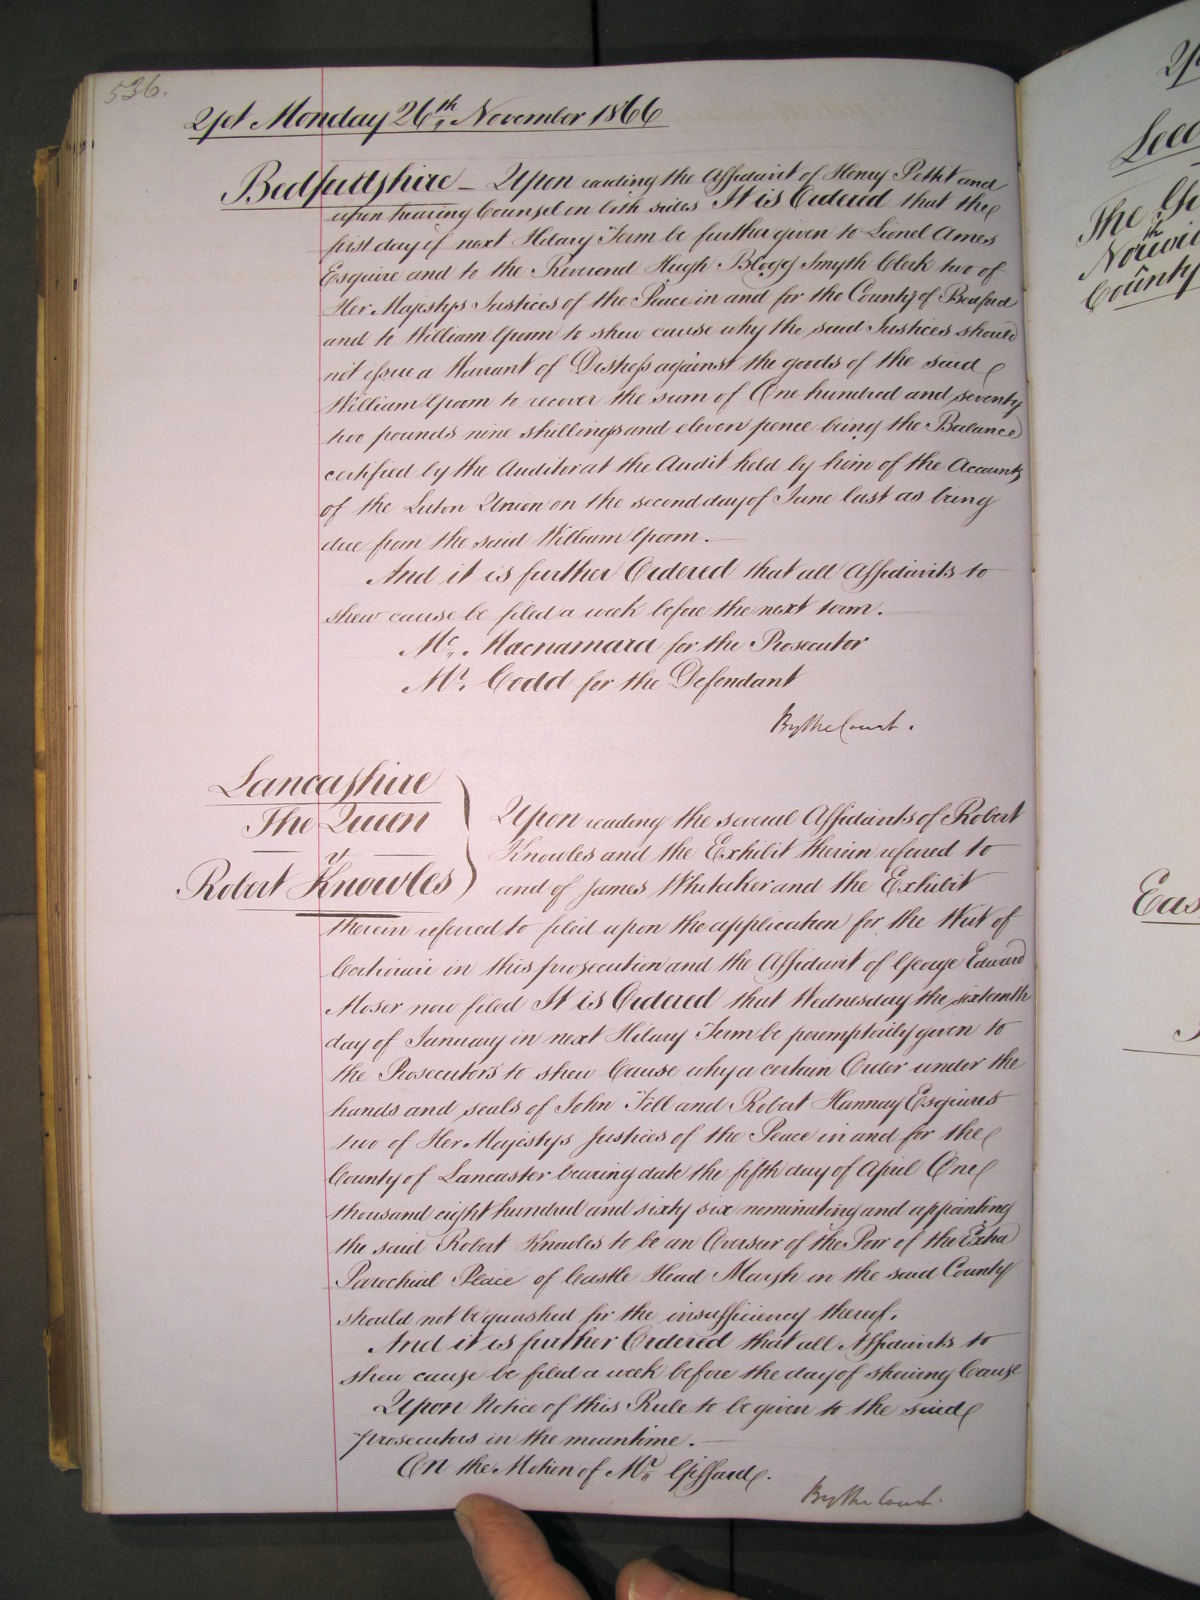 536.
2yd Monday 26th November 1866
Bedfordshire _ Upon reading the Affidavit of Henry Pettit and
upon hearing Counsel on both sides It is Ordered that the
first day of next Hilary Term be further given to Lionel Ames
Esquire and to the Reverend Hugh Blagg Smyth Clerk two of
Her Majestys Justices of the Peace in and for the County of Bedford
and to William Groom to shew cause why the said Justices should
not issue a Warrant of Distress against the goods of the said
William Groom to recover the sum of One hundred and seventy
two pounds nine shillings and eleven pence being the Balance
certified by the Auditor at the Audit held by him of the Accounts
of the Luton Union on the second day of June last as being
due from the said William Groom.
And it is further Ordered that all Affidavits to
shew cause be filed a week before the next term.
Mr. Macnamara for the Prosecutor
Mr. Codd for the Defendant
By the Court.
Lancashire
The Queen
v
Robert Knowles
Upon reading the several Affidavits of Robert
Knowles and the Exhibit therein referred to
and of James Whitaker and the Exhibit
therein referred to filed upon the application for the Writ of
Certiorari in this prosecution and the Affidavit of George Edward
Moser now filed It is Ordered that Wednesday the sixteenth
day of January in next Hilary Term be peremptorily given to
the Prosecutors to shew Cause why a certain Order under the
hands and seals of John Fell and Robert Hannay Esquires
two of Her Majestys Justices of the Peace in and for the
County of Lancaster bearing date the fifth day of April One
thousand eight hundred and sixty six nominating and appointing
the said Robert Knowles to be an Overseer of the Poor of the Extra
Parochial Place of Castle Head Marsh in the said County
should not be quashed for the insufficiency thereof.
And it is further Ordered that all Affidavits to
shew cause be filed a week before the day of shewing Cause
Upon Notice of this Rule to be given to the said
prosecutors in the meantime.
On the Motion of Mr. Giffard.
By the Court.
The
County